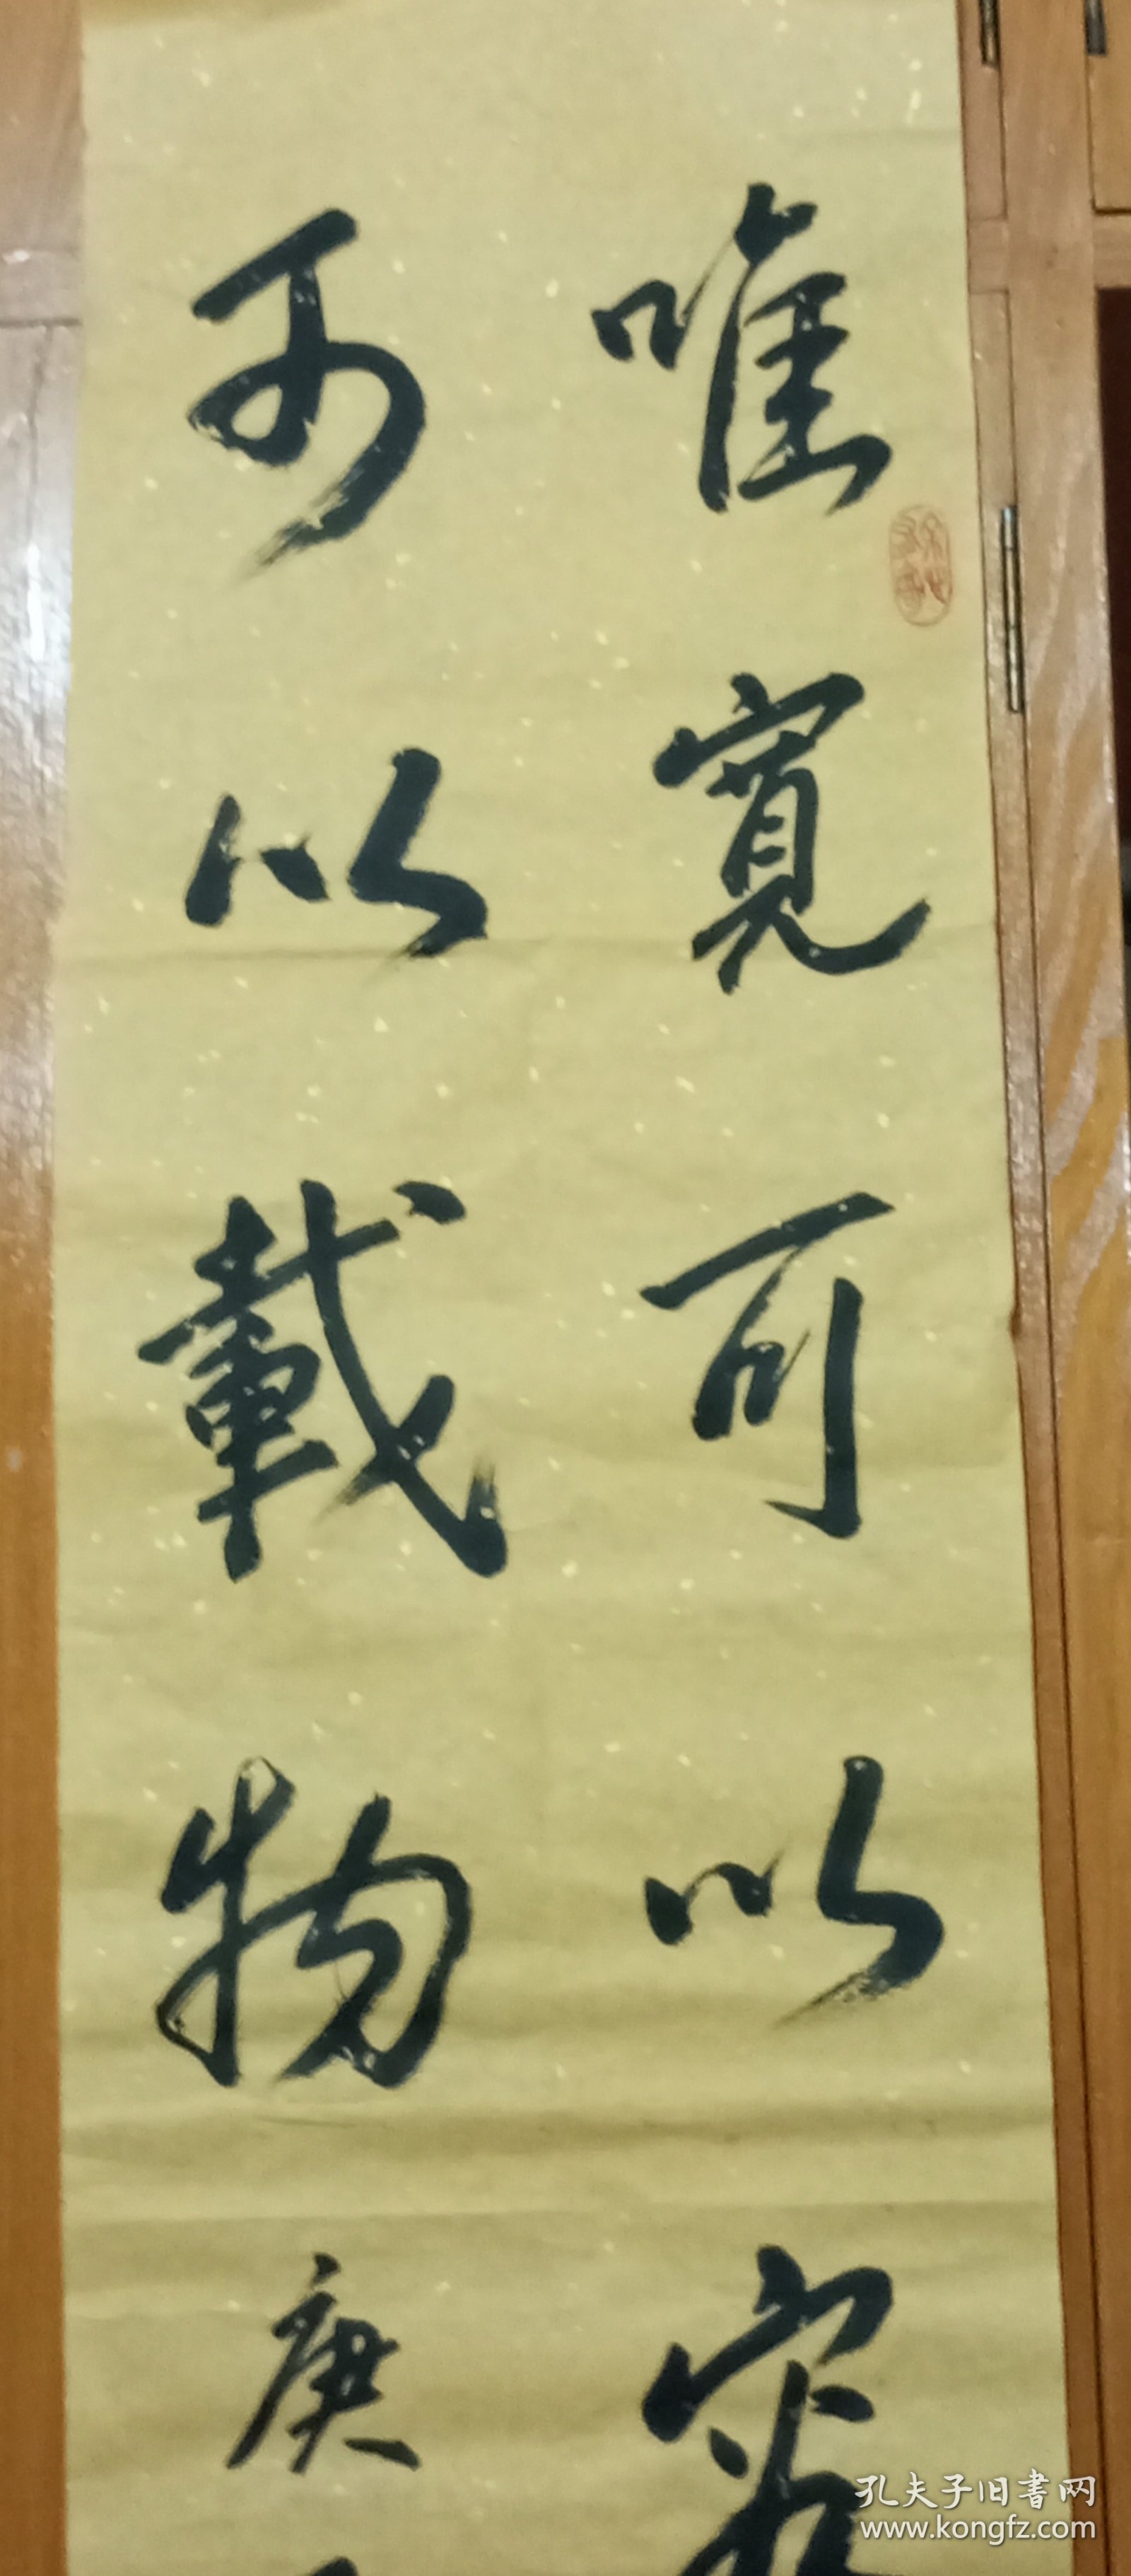 唯寬可以容
可以載物庚
孔夫子旧書网
www.kongfz.com